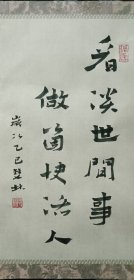 看淡世間事
做箇快活人
歲次乙巳